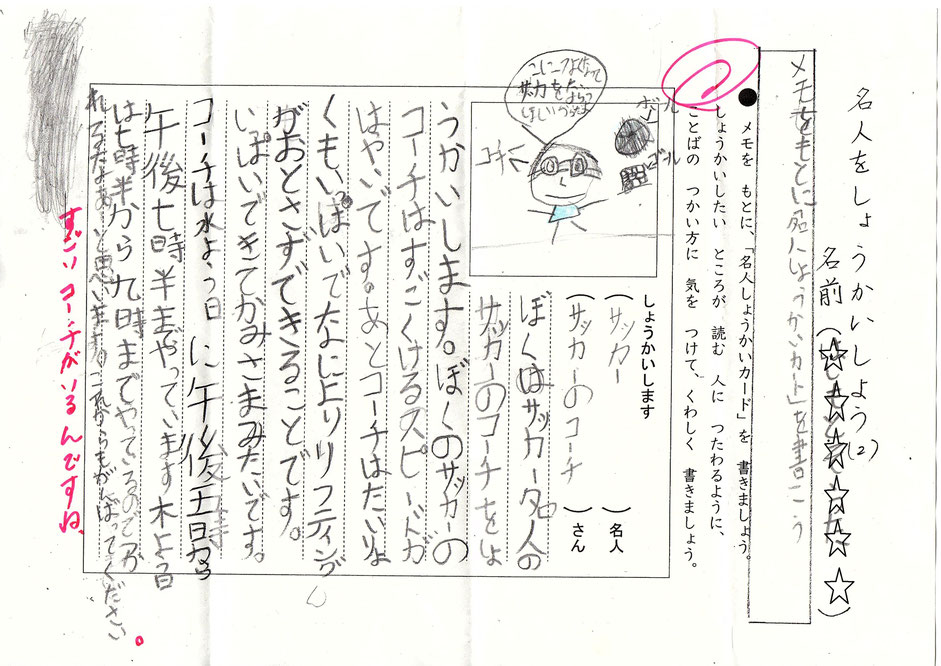 名人をしょうかいしよう(2)
名前(☆☆☆☆☆☆)
メモをもとに名人しょうかいカードを書こう
●メモを もとに、「名人しょうかいカード」を 書きましょう。
しょうかいしたい ところが 読む 人に つたわるように、
ことばの つかい方に 気を つけて、くわしく 書きましょう。
ボール
ゴール
コーチ
しょうかいします
(サッカー)名人
(サッカーのコーチ)さん
ぼくはサッカー名人の
サッカーのコーチをしょ
うかいします。ぼくのサッカーの
コーチはすごくけるスピードが
はやいです。あとコーチはたいりょ
くもいっぱいでなによりリフティング
がおとさずできることです。
いっぱいできてかみさまみたいです。
コーチは水よう日 に午後 から
午後七時半までやっています木よう日
は七時半から九時までやっているのでつか
れるだろなあと思います。これからもがんばってください。
すごい コーチがいるんですね。